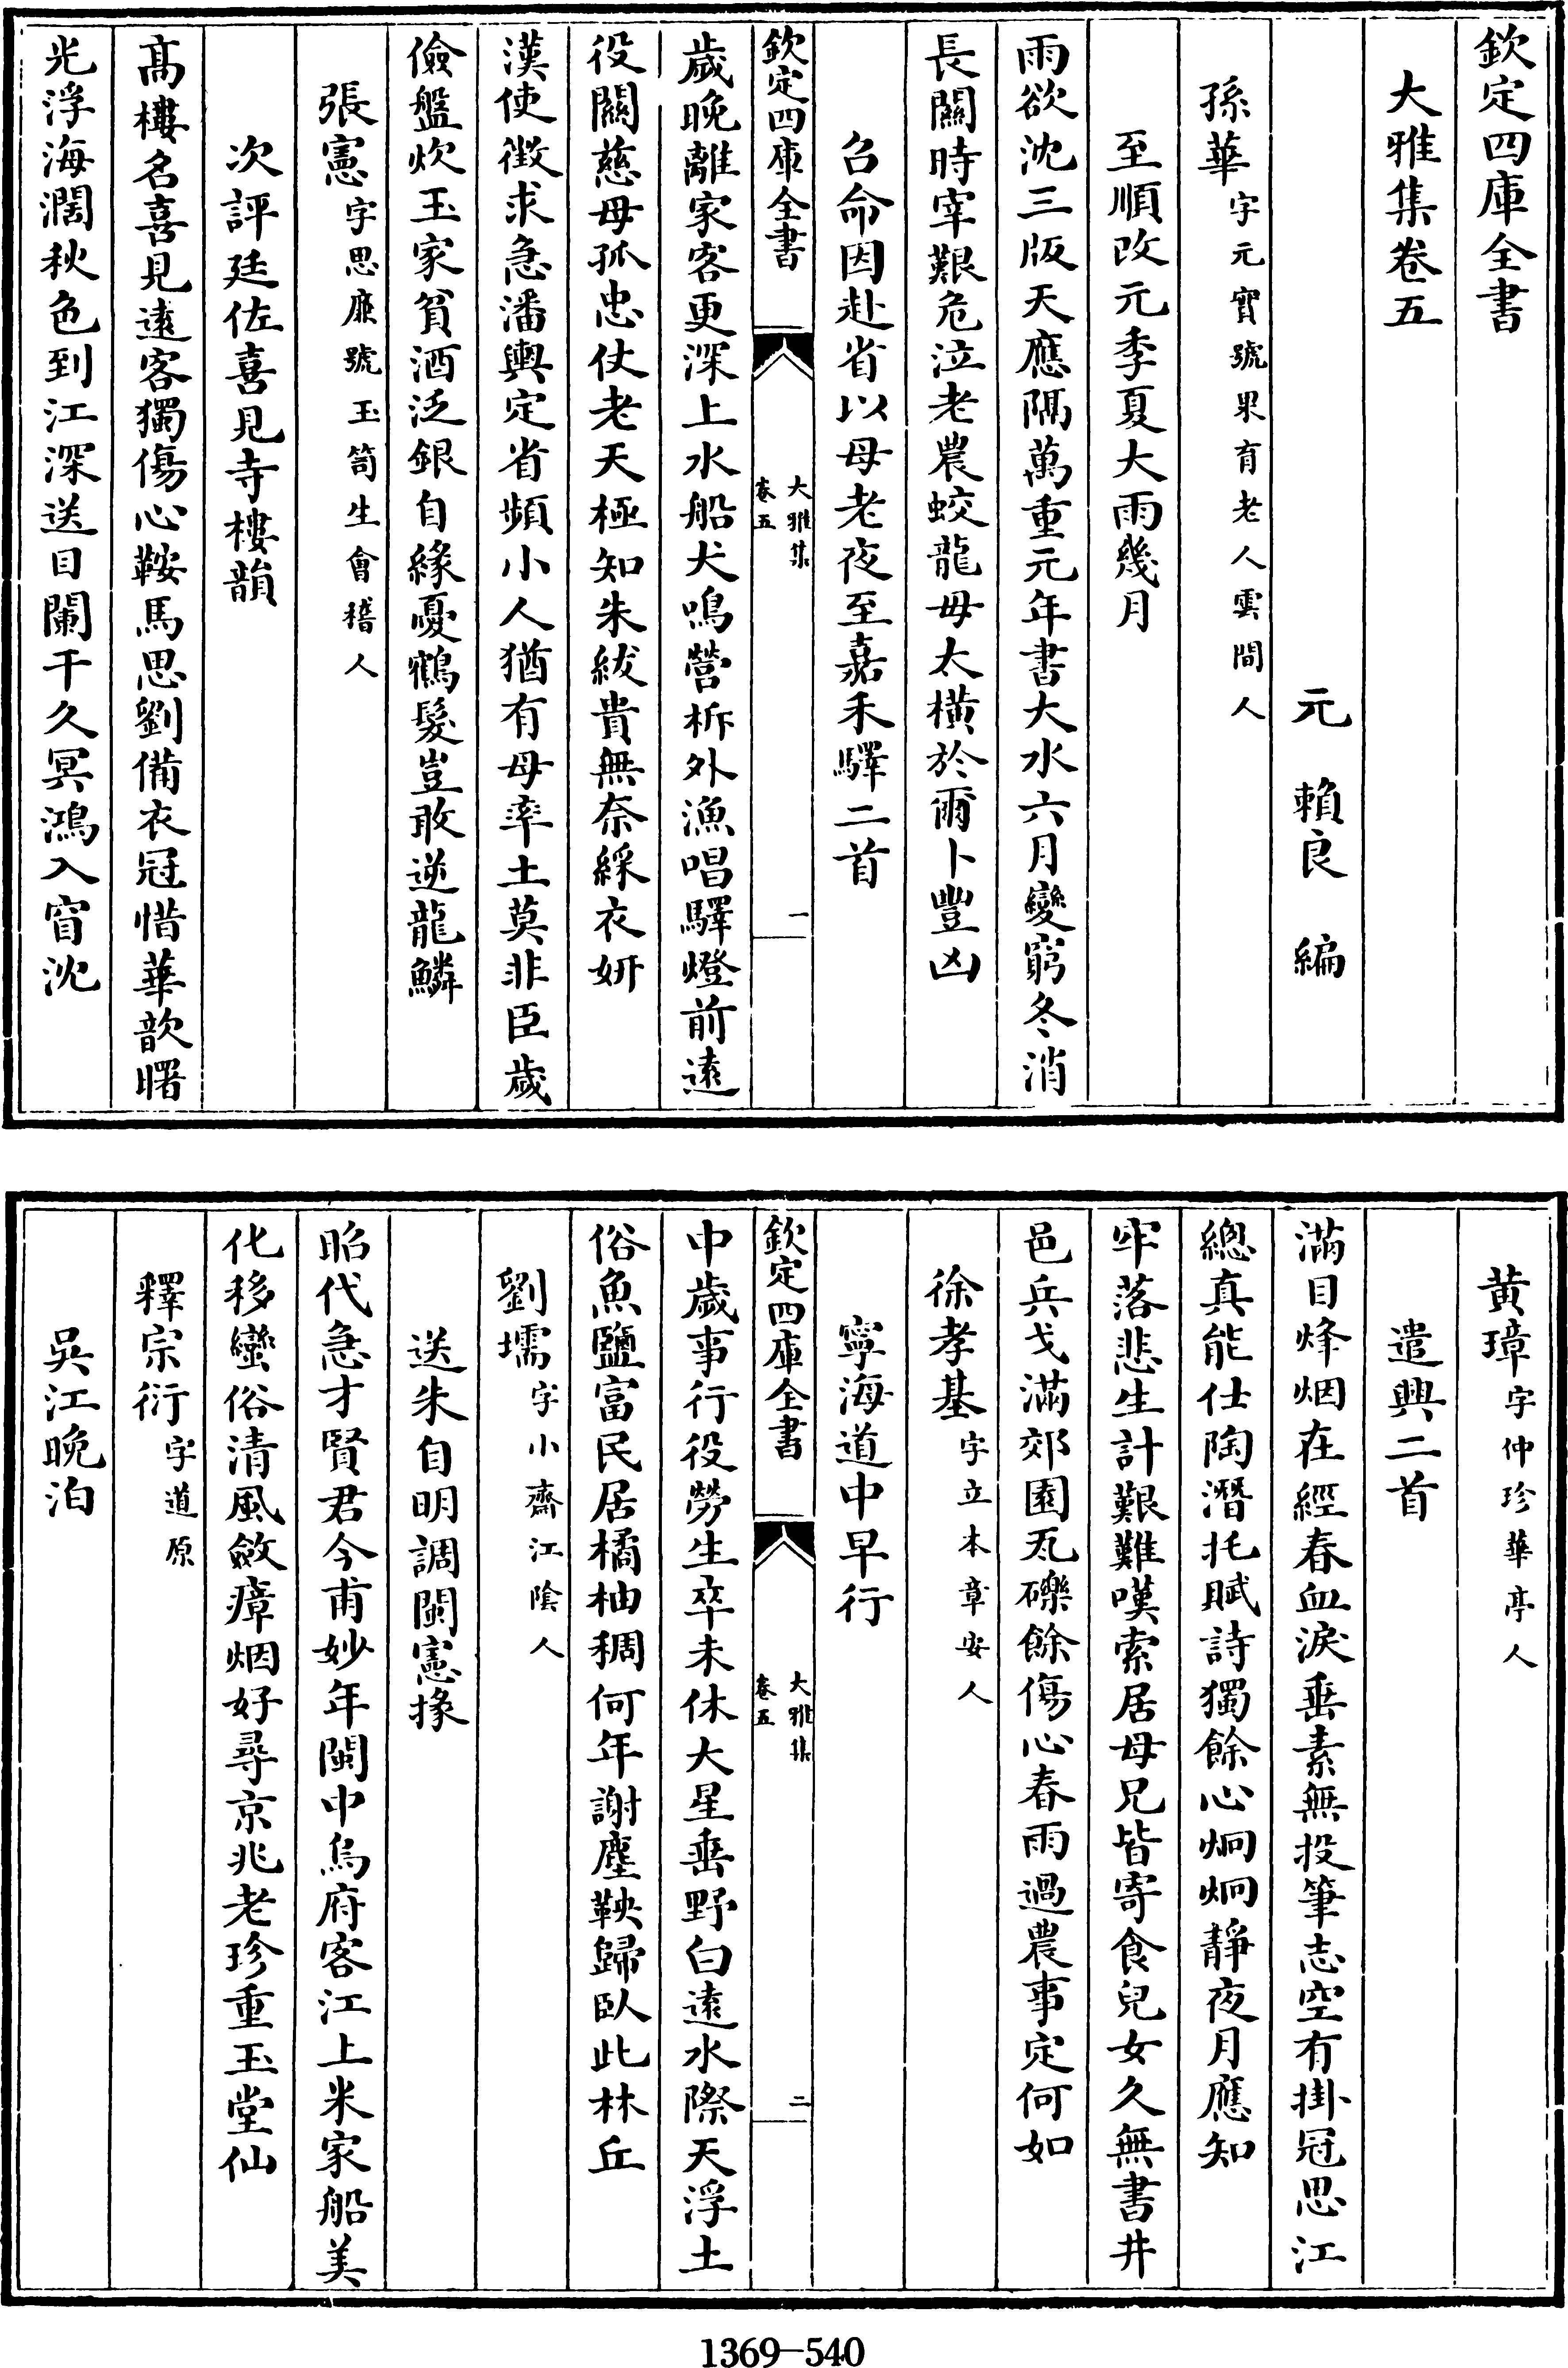 欽定四庫全書
大雅集卷五
元　賴良　編
孫華字元實號果育老人雲間人
至順改元季夏大雨幾月
雨欲沈三版天應隔萬重元年書大水六月變窮冬消
長關時宰艱危泣老農蛟龍毋太橫於爾卜豐凶
召命因赴省以母老夜至嘉禾驛二首
欽定四庫全書
大雅集
卷五
一
歲晚離家客更深上水船犬鳴營柝外漁唱驛燈前遠
役關慈母孤忠仗老天極知朱紱貴無奈綵衣妍
漢使徵求急潘輿定省頻小人猶有母率土莫非臣歲
儉盤炊玉家貧酒泛銀自緣憂鶴髮豈敢逆龍鱗
張憲字思廉號玉笥生會稽人
次評廷佐喜見寺樓韻
髙樓名喜見遠客獨傷心鞍馬思劉備衣冠惜華歆曙
光浮海濶秋色到江深送目闌干久冥鴻入窅沈
黄璋字仲珍華亭人
遣興二首
滿目烽烟在經春血淚垂素無投筆志空有掛冠思江
總真能仕陶潛托賦詩獨餘心炯炯靜夜月應知
牢落悲生計艱難嘆索居母兄皆寄食兒女久無書井
邑兵戈滿郊園瓦礫餘傷心春雨過農事定何如
徐孝基字立本章安人
寧海道中早行
欽定四庫全書
大雅集
卷五
二
中歲事行役勞生卒未休大星垂野白遠水際天浮土
俗魚鹽富民居橘柚稠何年謝塵鞅歸臥此林丘
劉壖字小齋江陰人
送朱自明調閩憲掾
昭代急才賢君今甫妙年閩中烏府客江上米家船美
化移蠻俗清風斂瘴烟好尋京兆老珍重玉堂仙
釋宗衍字道原
吳江晚泊
1369—540